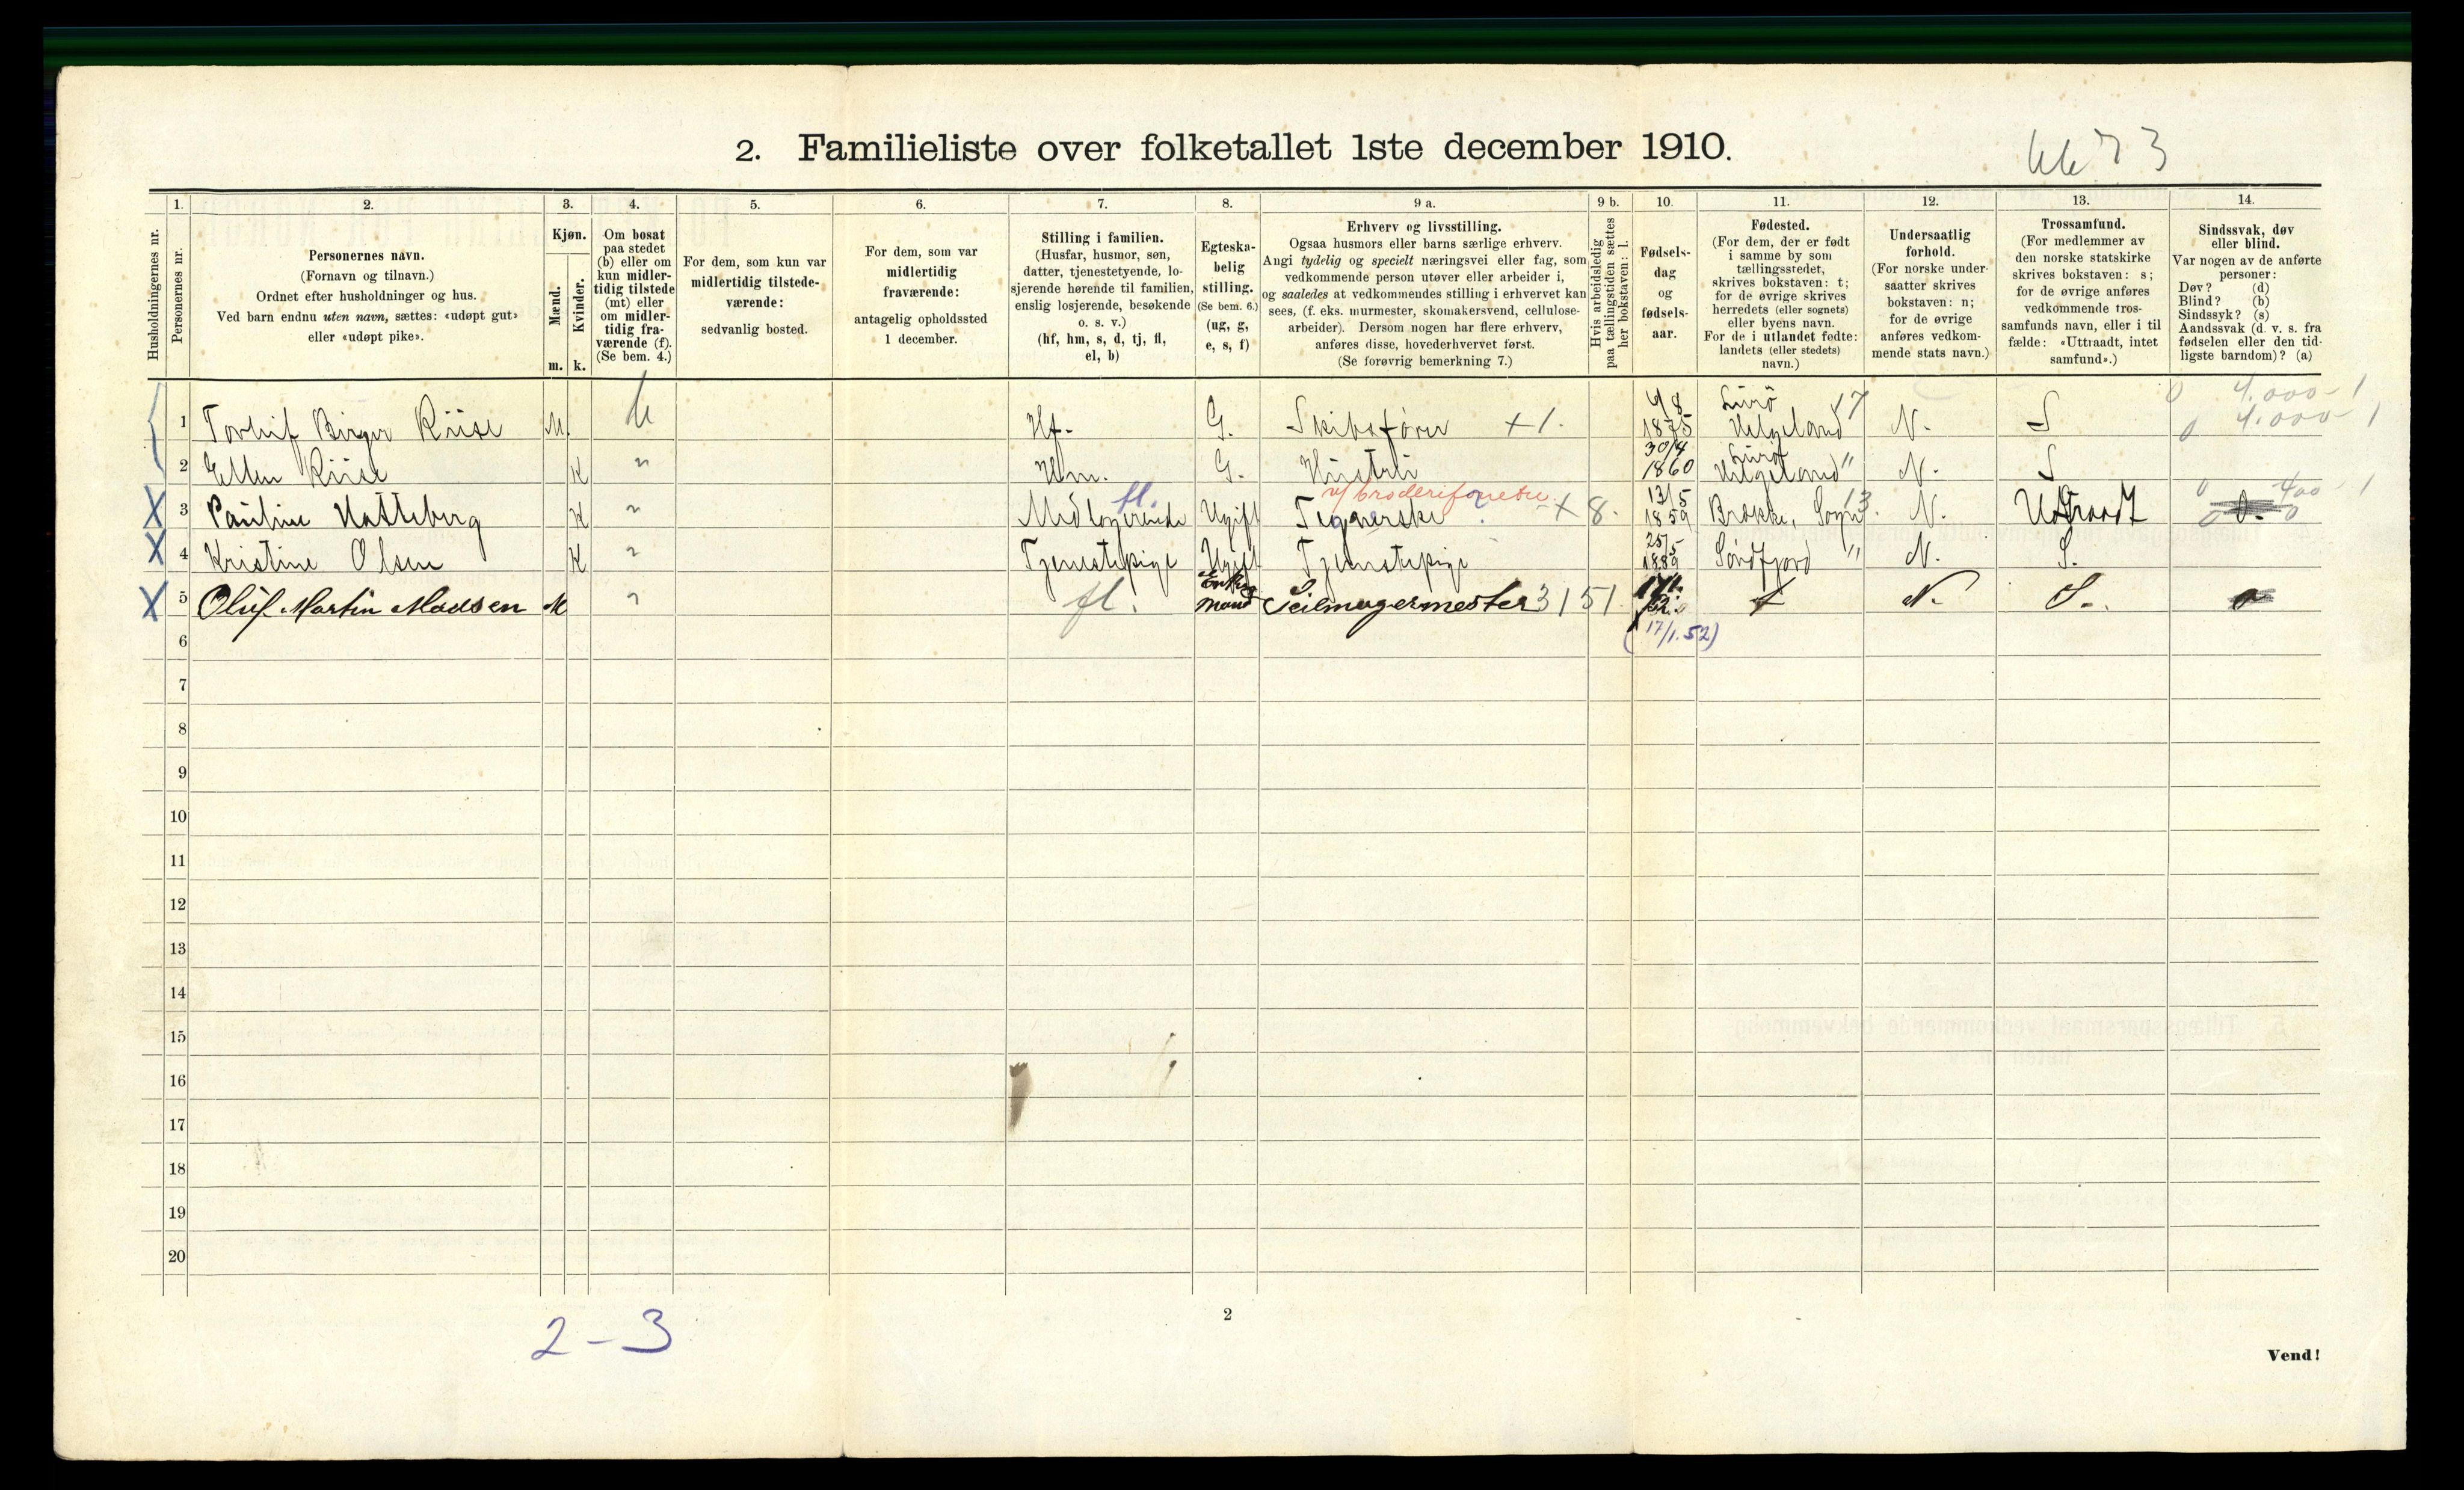 2. Familieliste over folketallet 1ste december 1910.
Husholdningernes nr.
1.
Personernes nr.
2.
Personernes navn.
(Fornavn og tilnavn.)
Ordnet efter husholdninger og hus.
Ved barn endnu uten navn, sættes: «udøpt gut»
eller «udøpt pike».
3.
Kjøn.
Mænd.
Kvinder.
m. k.
4.
Om bosat
paa stedet
(b) eller om
kun midler-
tidig tilstede
(mt) eller
om midler-
tidig fra-
værende (f).
(Se bem. 4.)
5.
For dem, som kun var
midlertidig tilstede-
værende:
sedvanlig bosted.
6.
For dem, som var
midlertidig
fraværende:
antagelig opholdssted
1 december.
7.
Stilling i familien.
(Husfar, husmor, søn,
datter, tjenestetyende, lo-
sjerende hørende til familien,
enslig losjerende, besøkende
o. s. v.)
(hf, hm, s, d, tj, fl,
el, b)
8.
Egteska-
belig
stilling.
(Se bem. 6.)
(ug, g,
e, s, f)
9 a.
Erhverv og livsstilling.
Ogsaa husmors eller barns særlige erhverv.
Angi tydelig og specielt næringsvei eller fag, som
vedkommende person utøver eller arbeider i,
og saaledes at vedkommendes stilling i erhvervet kan
sees, (f. eks. murmester, skomakersvend, cellulose-
arbeider). Dersom nogen har flere erhverv,
anføres disse, hovederhvervet først.
(Se forøvrig bemerkning 7.)
9 b.
Hvis arbeidsledig
paa tællingstiden sættes
her bokstaven: l.
10.
Fødsels-
dag
og
fødsels-
aar.
11.
Fødested.
(For dem, der er født
i samme by som
tællingsstedet,
skrives bokstaven: t;
for de øvrige skrives
herredets (eller sognets)
eller byens navn.
For de i utlandet fødte:
landets (eller stedets)
navn.)
12.
Undersaatlig
forhold.
(For norske under-
saatter skrives
bokstaven: n;
for de øvrige
anføres vedkom-
mende stats navn.)
13.
Trossamfund.
(For medlemmer av
den norske statskirke
skrives bokstaven: s;
for de øvrige anføres
vedkommende tros-
samfunds navn, eller i til
fælde: «Uttraadt, intet
samfund».)
14.
Sindssvak, døv
eller blind.
Var nogen av de anførte
personer:
Døv? (d)
Blind? (b)
Sindssyk? (s)
Aandssvak (d. v. s. fra
fødselen eller den tid-
ligste barndom)? (a)
0 4.000-1
1 Torleif Birger Riise M. b Hf. G. Skibsfører +1. 6/8 1875 Lurö Helgeland 17 N. S 0 4.000-1
2 Ellen Riise K " Hm. G. Hustru 30/4 1860 Lurö Helgeland " N. S
3 Pauline Hatteberg K " Medlogerende fl. Ugift Tegnerske v/ broderiforretn. + 8. 13/5 1859 Brække, Sogn 13. N. Udtraadt 0 400-1
4 Kristine Olsen K " Tjenestepige Ugift Tjenestepige 25/5 1889 Søndfjord " N. S.
5 Oluf Martin Madsen M " fl. Enke mand Seilmagermester 3151. 17/1. 52. t N. S.
(17/1.52)
6
7
8
9
10
11
12
13
14
15
16
17
18
19
20
2-3
2
Vend!